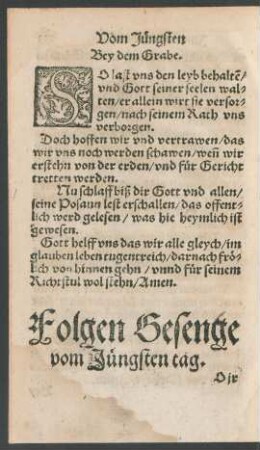 Vom Jüngsten
Bey dem Grabe.
SO last vns den leyb behaltē/
vnd Gott seiner seelen wal-
ten/er allein wirt sie versor-
gen/nach seinem Rath vns
verborgen.
Doch hoffen wir vnd vertrawen/das
wir vns noch werden schawen/weñ wir
erstehn von der erden/vnd für Gericht
tretten werden.
Nu schlaff biß dir Gott vnd allen/
seine Posaun lest erschallen/das offent-
lich werd gelesen/was hie heymlich ist
gewesen.
Gott helff vns das wir alle gleych/im
glauben leben tugentreich/darnach frö-
lich von hinnen gehn/vnnd für seinem
Richtstul wol stehn/Amen.
Folgen Gesenge
vom Jüngsten tag.